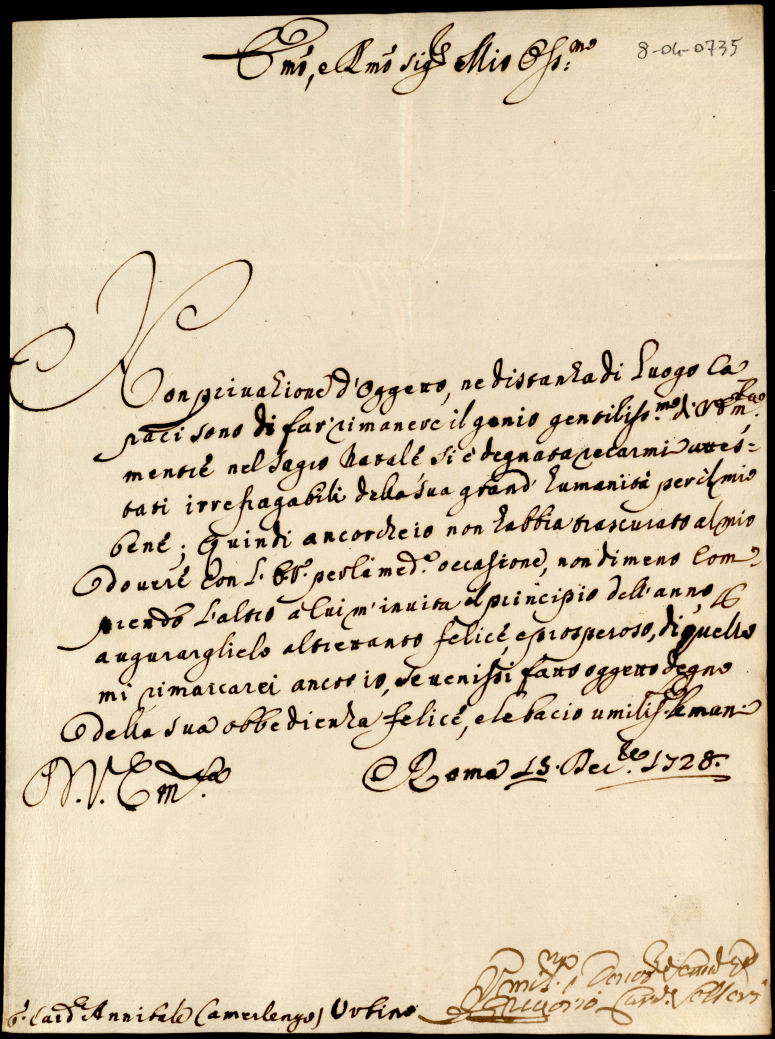 Emo, e Rmo Sigre Mio Ossmo
8-04-0735
Non privazione d'Oggetto, ne distanza di luogo ca
paci sono di far rimanere il genio gentilissmo di
mentre nel Sagro Natale si è degnata recarmi attes=
tati irrefragabili della sua grand' humanità per il mio
bene; Quindi ancorche io non habbia trascurato al mio
dovere con l' per la meda occasione, nondimeno com
piendo l'altro a cui m'invita il principio dell'anno,
augurarglielo altrettanto felice, e prosperoso, di quello
mi rimarcarei ancor io, se venissi fatto oggetto degno
della sua obbedienza felice, e le bacio umilissie man:
D. V. Emza Roma 15. Decre 1728.
Sr Card Annibale Camerlengo / Urbino
Gregorio Card. Selleri